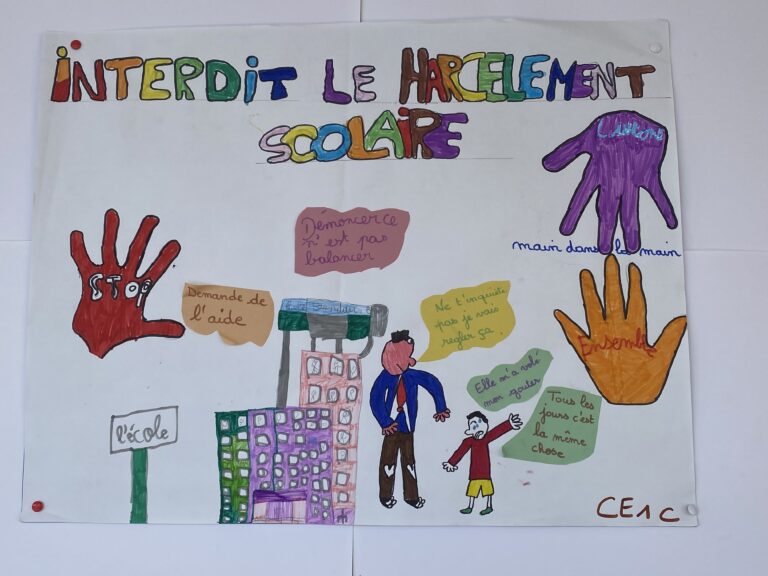 INTERDIT LE HARCELEMENT
SCOLAIRE
STOP
Démoncer ce
n'est pas
balancer
Demande de
l'aide
Ne t'inquiète
pas je vais
regler ça.
Elle m'a volé
mon gouter
Tous les
jours c'est
la même
chose
main dans la main
Ensemble
l'école
CE1 C